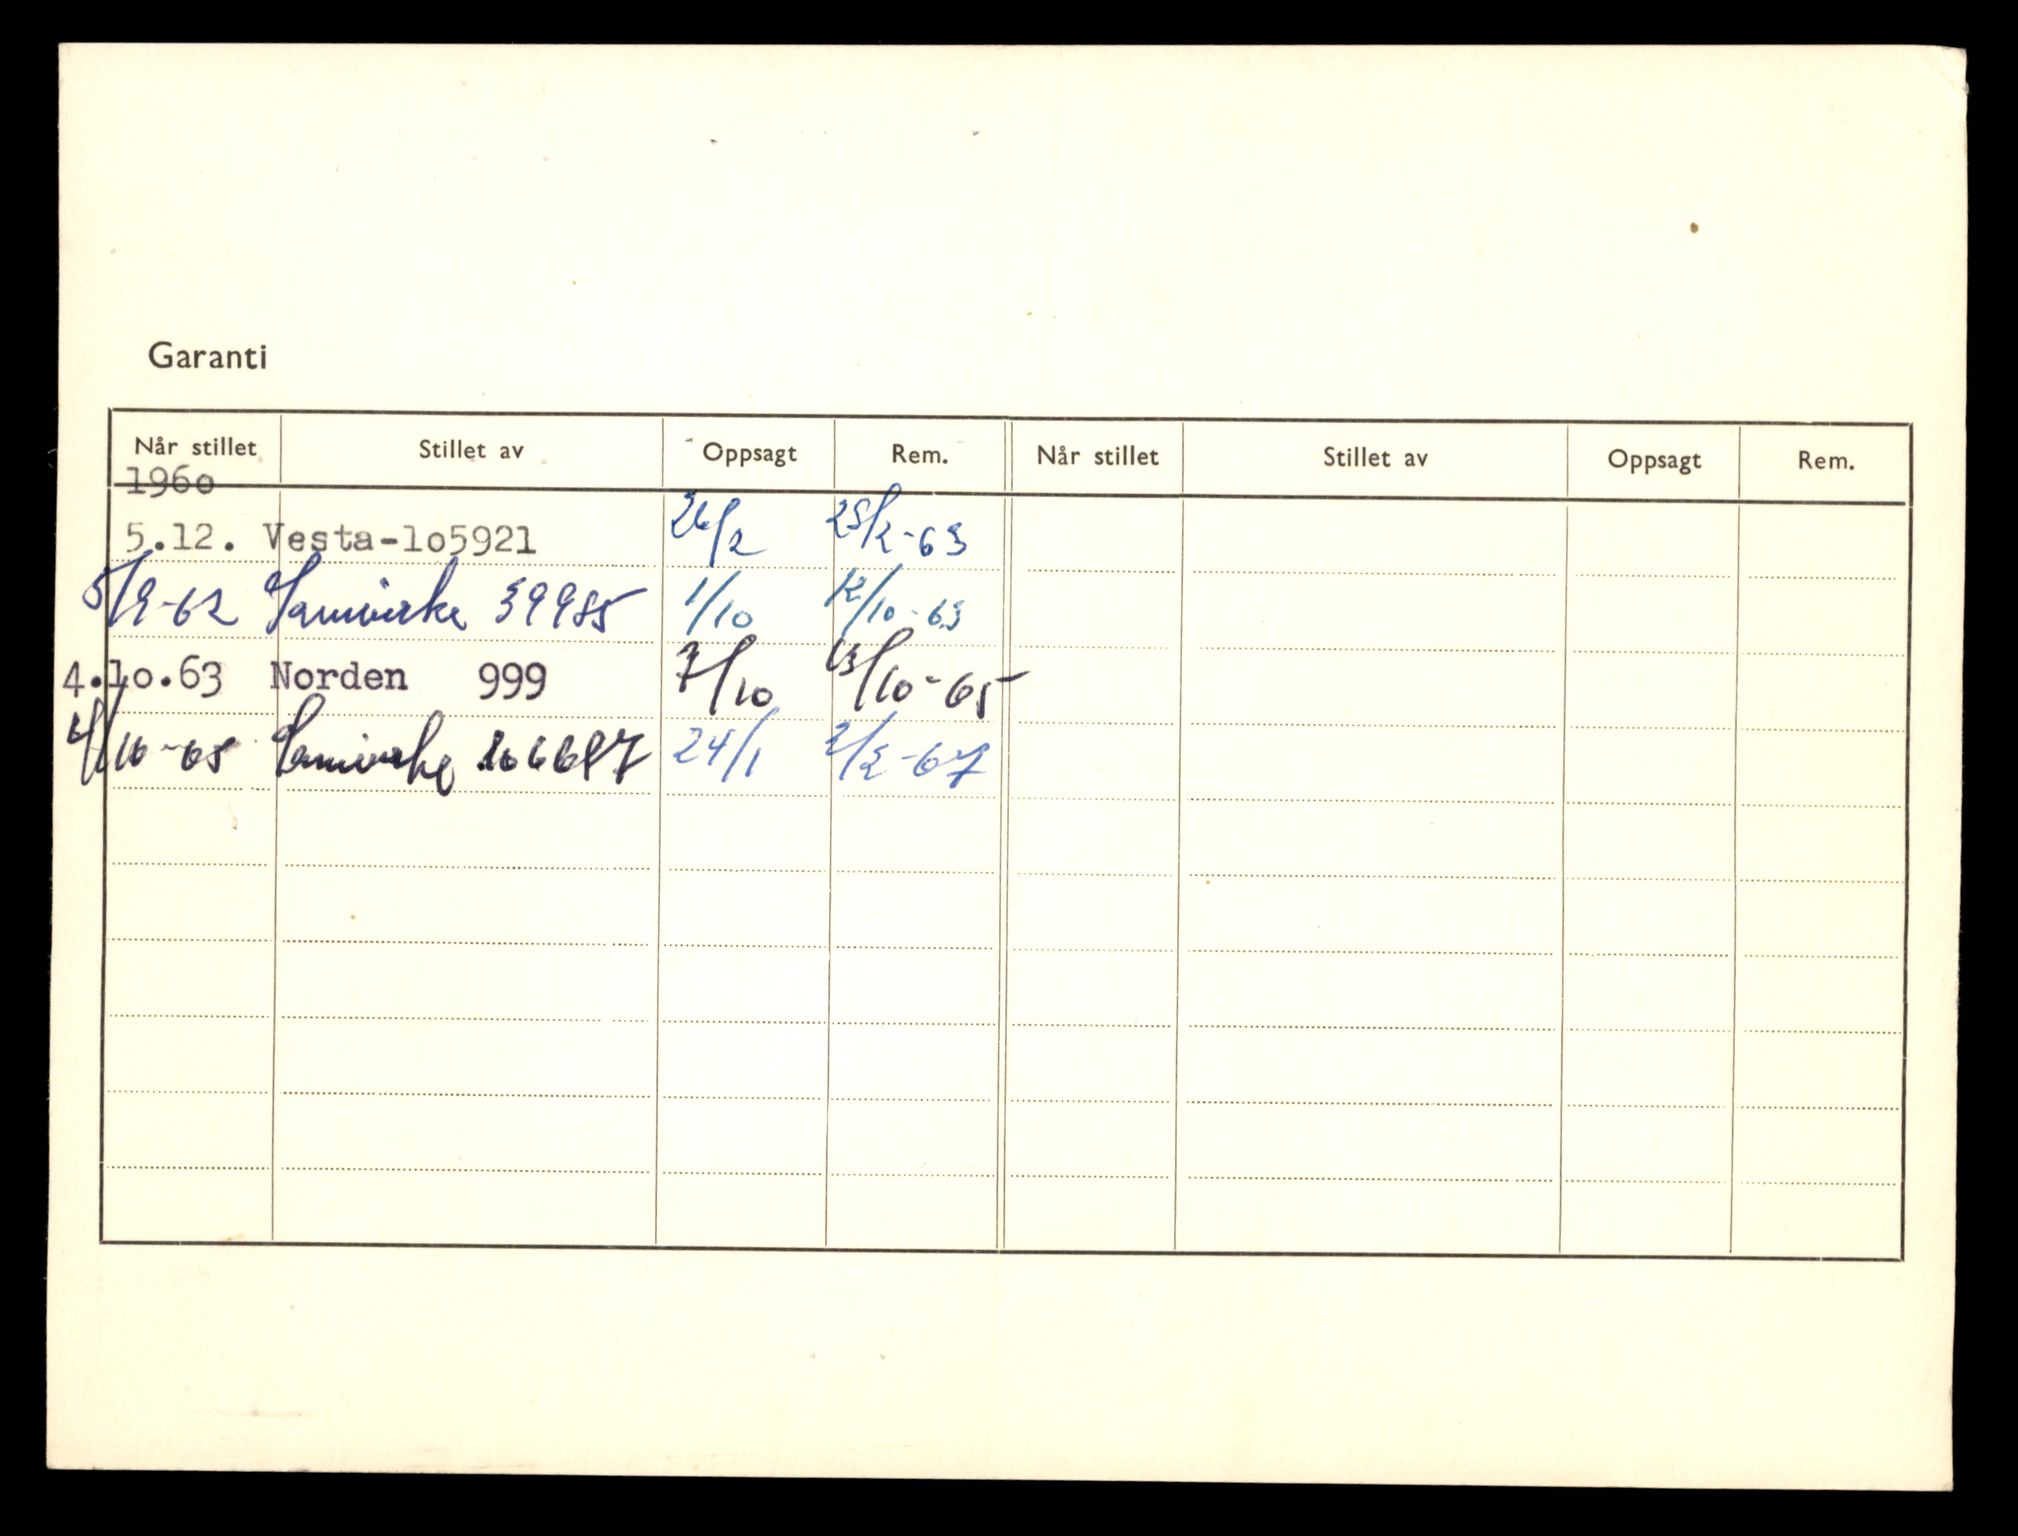 Garanti
Når stillet Stillet av Oppsagt Rem. Når stillet Stillet av Oppsagt Rem.
1960
5.12. Vesta-lo5921 26/2 25/2-63
5/9-62 Samvirke 39985 1/10 12/10-63
4.lo.63 Norden 999 7/10 13/10-65
4/10-65 Samvirke 24/1 2/2-67